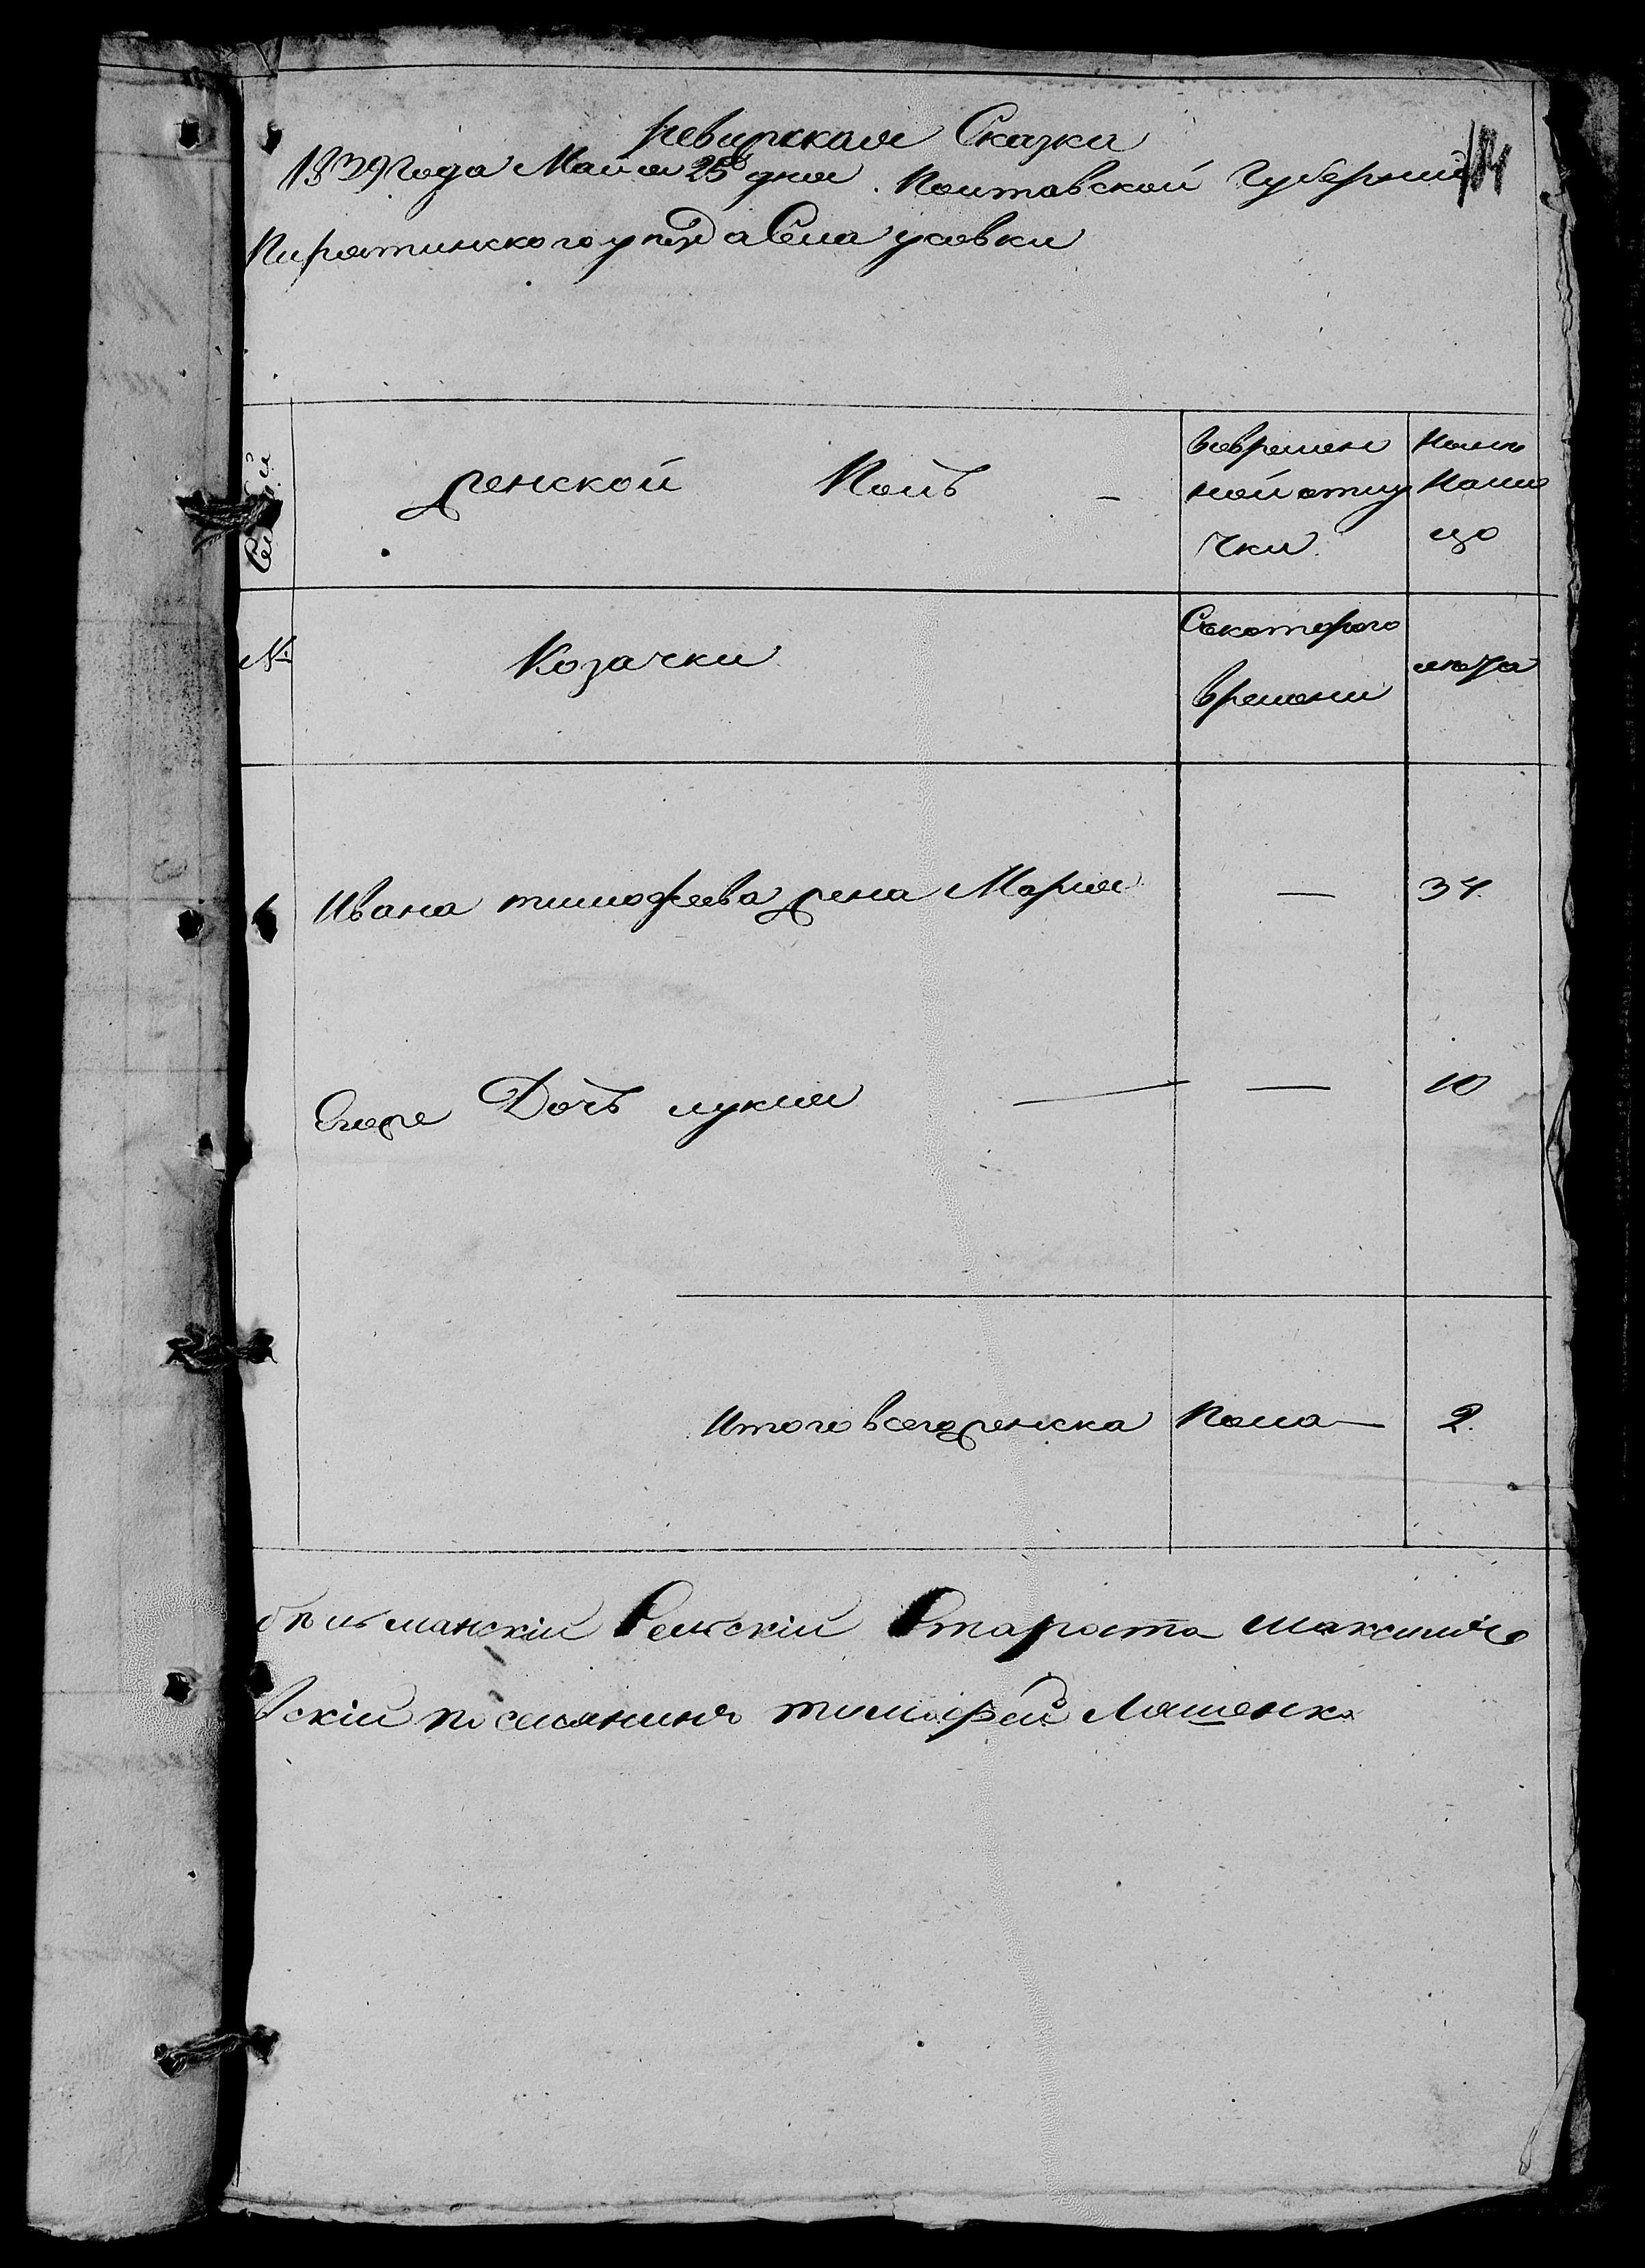 ревизская Сказка
184
1839 года Майя 25 дня. Полтавской Губернии
Пирятинского уезда Села усовки
женской Полъ -
вовремен
ной отлу
чки.
Ныне
Нали
цо
№
Козачки
Скоторого
времени
лета
1 Ивана тимофеева жена Мария — 34.
Егоже Дочь лукия — — 10
Итого всего женска Пола — 2.
Селскій Староста
скій поселянинъ тимофей Ляшенко